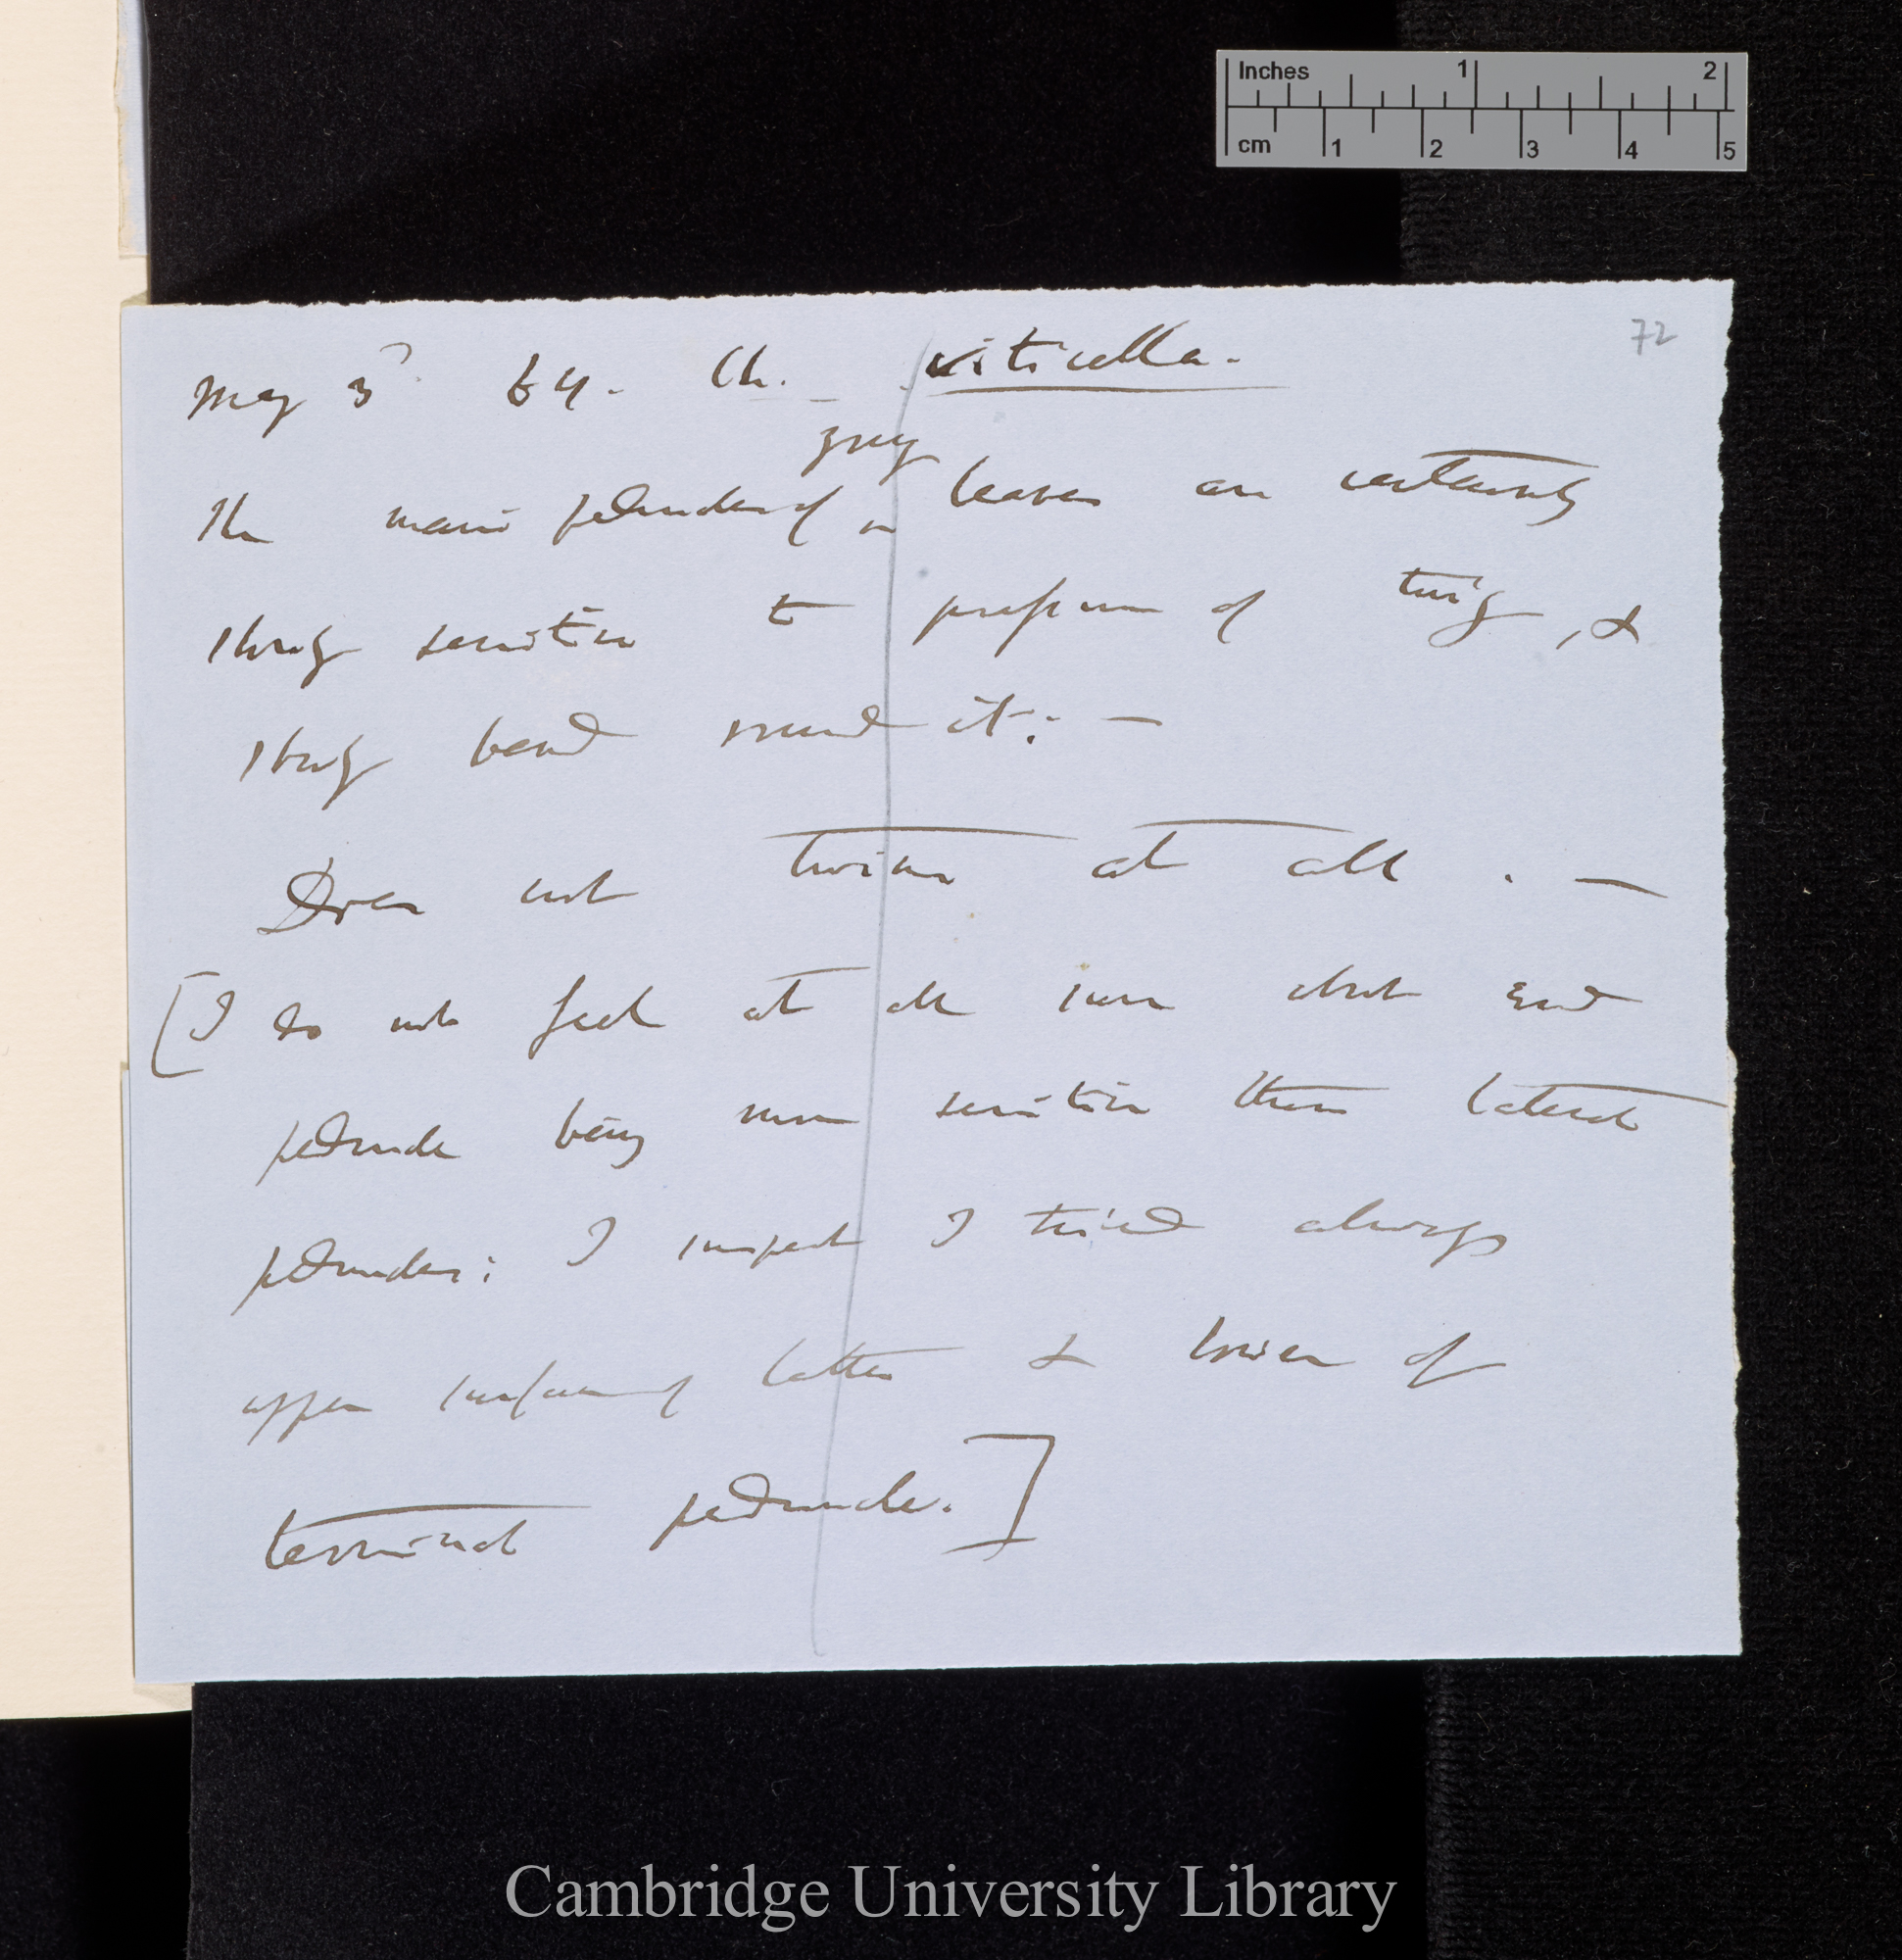 Inches 1 2
cm 1 2 3 4 5
72
May 3d 64. Cl. viticella.
young
The main peduncles of leaves are certainly
strongly sensitive to pressure of twig, &
strongly bend round it: —
Does not twine at all. —
[I do not feel at all sure about end
peduncle being more sensitive than lateral
peduncles: I suspect I tried always
upper surface of latter & lower of
terminal peduncle.]
Cambridge University Library